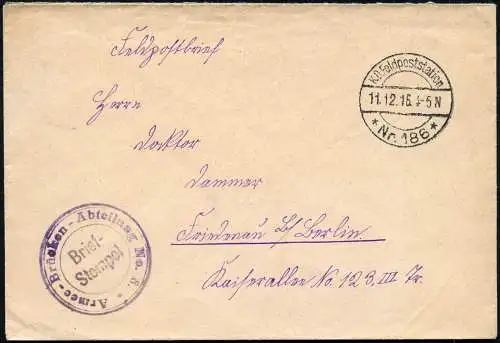 Feldpostbrief
K.D.Feldpoststation
11.12.16. 4-5 N
* Nr. 186 *
Herrn
Doktor
Dammer
Friedenau b/Berlin.
Kaiserallee No. 123. III Tr.
Armee-Brücken-Abteilung No. 8.
Brief-
Stempel